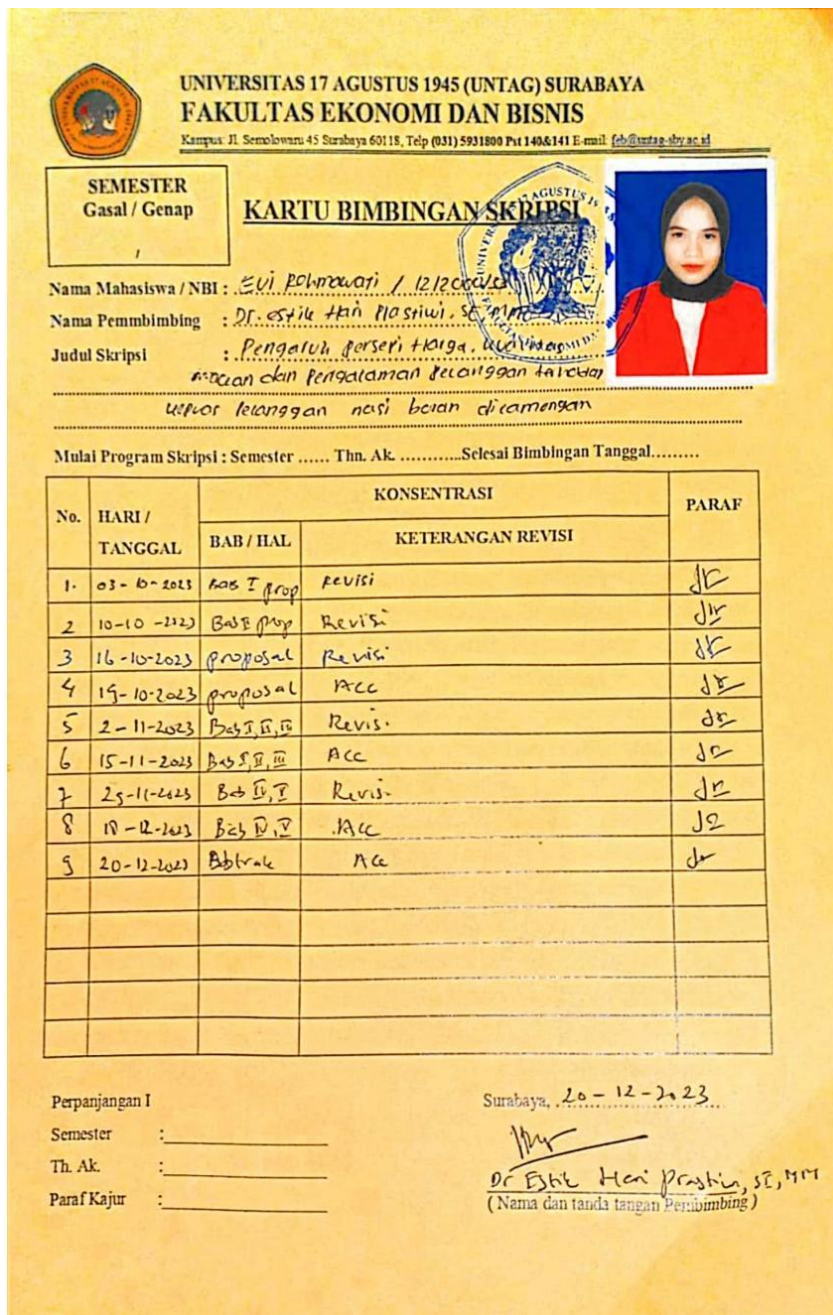 UNIVERSITAS 17 AGUSTUS 1945 (UNTAG) SURABAYA
FAKULTAS EKONOMI DAN BISNIS
Kampus: Jl. Semolowaru 45 Surabaya 60118, Telp (031) 5931800 Pst 140&141 E-mail: feb@untag-sby.ac.id
SEMESTER
Gasal / Genap
/
KARTU BIMBINGAN SKRIPSI
Nama Mahasiswa / NBI : Evi Rohmawati /
Nama Pemmbimbing : Dr. Estik Hari Prastiwi, SE, MM
Judul Skripsi : Pengaruh Persepi Harga,
dan Pengalaman Pelanggan
pelanggan nasi boran dilamongan
Mulai Program Skripsi : Semester ...... Thn. Ak. ............Selesai Bimbingan Tanggal.........
No. HARI / TANGGAL KONSENTRASI PARAF
BAB / HAL KETERANGAN REVISI
1. 03-10-2023 Bab I prop Revisi
2 10-10-2023 Bab prop Revisi
3 16-10-2023 proposal Revisi
4 19-10-2023 proposal Acc
5 2-11-2023 Bab I, II, III Revisi
6 15-11-2023 Bab I, II, III Acc
7 25-11-2023 Bab IV, V Revisi
8 18-12-2023 Bab IV, V Acc
9 20-12-2023 Abstrak Acc
Perpanjangan I
Semester :
Th. Ak. :
Paraf Kajur :
Surabaya, 20-12-2023
Dr Estik Hari Prastiwi, SE, MM
(Nama dan tanda tangan Pembimbing)